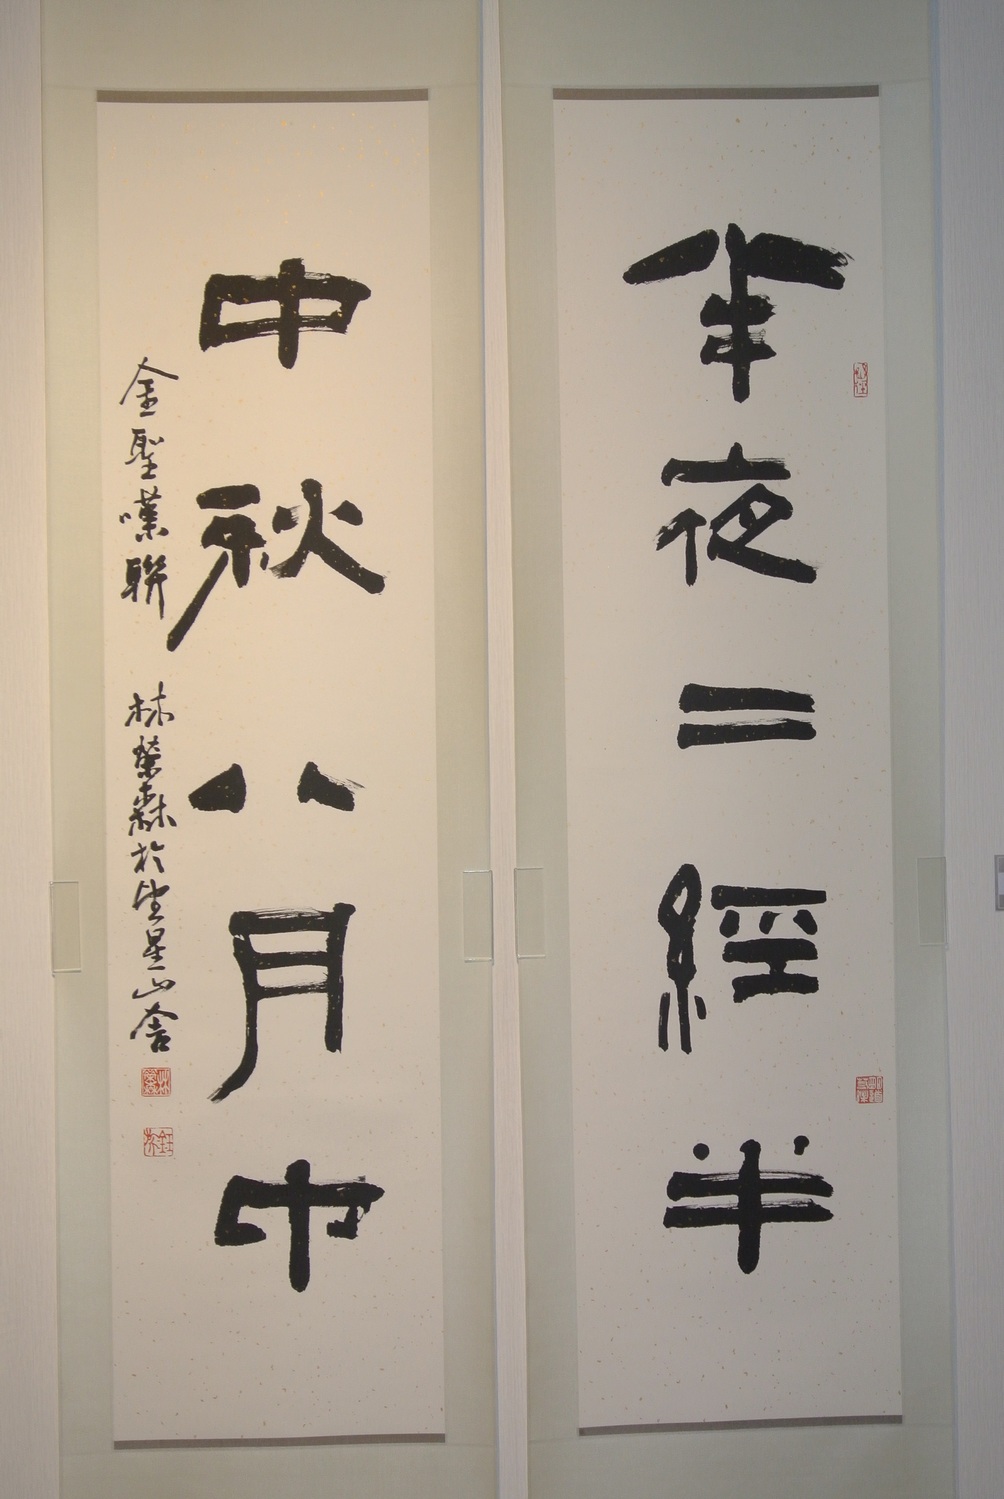 半夜二經半
中秋八月中
金聖嘆聯
林榮森於望星山舍